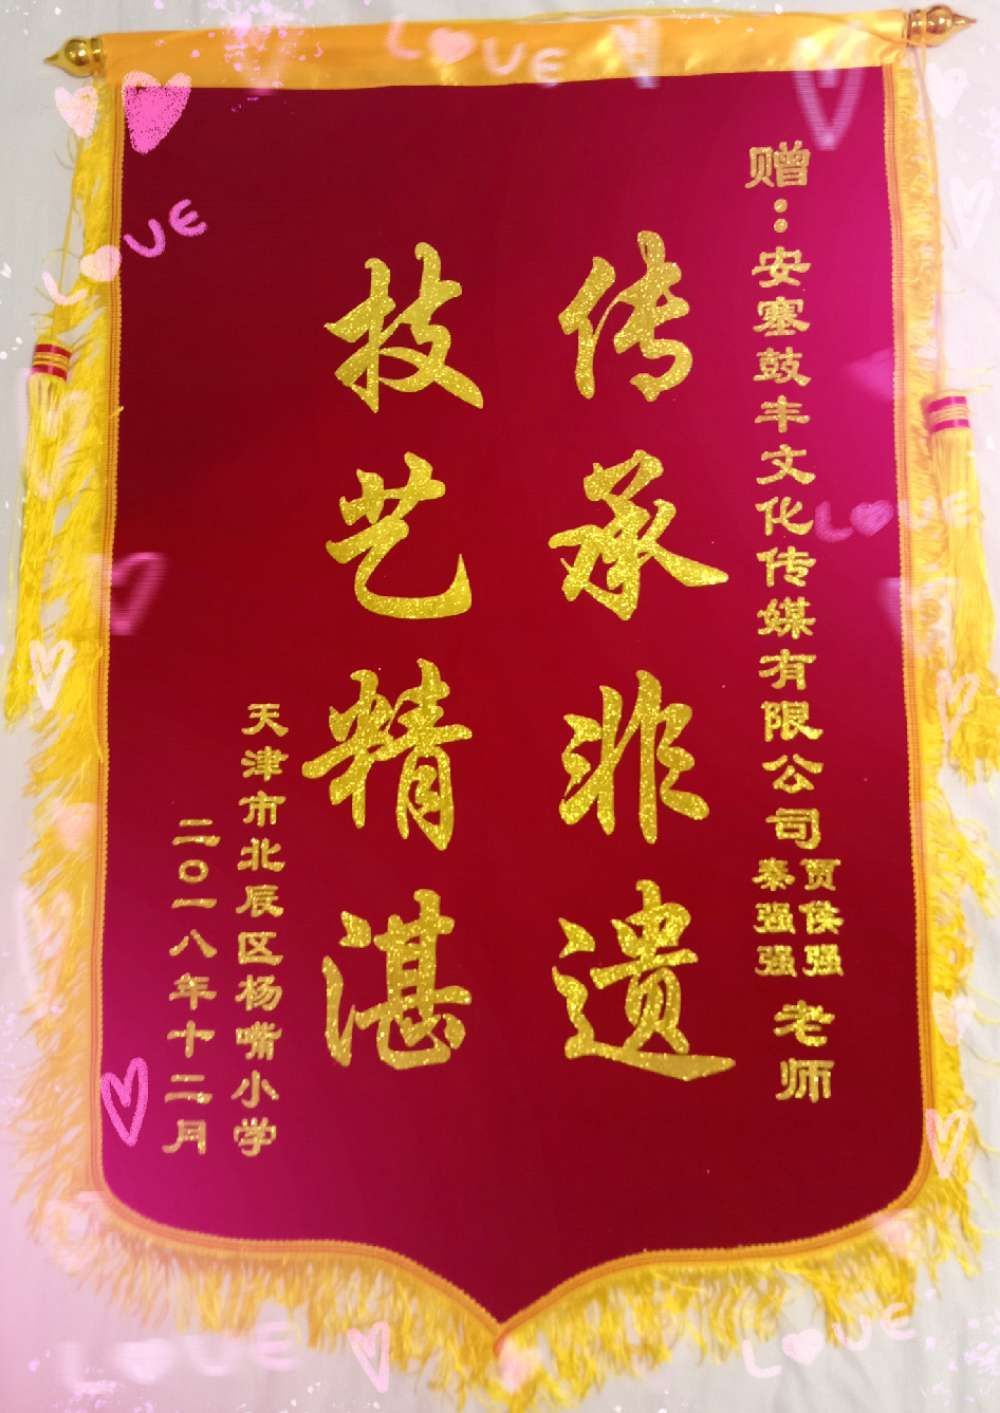 赠：安塞鼓丰文化传媒有限公司
贾侯强
秦强强
老师
传承非遗
技艺精湛
天津市北辰区杨嘴小学
二〇一八年十二月
LOVE
LOVE
LOVE
LOVE
LOVE